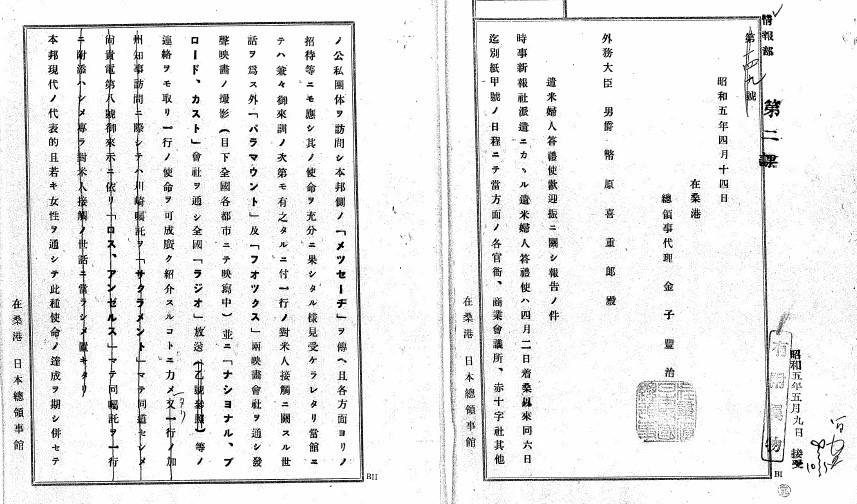 情報部
第二課
第一四九號
昭和五年四月十四日
在桑港
總領事代理 金子豐治
外務大臣 男爵 幣原喜重郎殿
遣米婦人答禮使歡迎振ニ關シ報告ノ件
時事新報社派遣ニカヽル遣米婦人答禮使ハ四月二日着桑以來同六日
迄別紙甲號ノ日程ニテ當方面ノ各官衙、商業會議所、赤十字社其他
在桑港 日本總領事館
昭和五年五月九日 接受
BI
ノ公私團体ヲ訪問シ本邦側ノ「メツセーヂ」ヲ傳ヘ且各方面ヨリノ
招待等ニモ應シ其ノ使命ヲ充分ニ果シタル樣見受ケラレタリ當館ニ
テハ兼々御來訓ノ次第モ有之タルニ付一行ノ對米人接觸ニ關スル世
話ヲ爲ス外「パラマウント」及「フオツクス」兩映畫會社ヲ通シ發
聲映畫ノ撮影(目下全國各都市ニテ映寫中)並ニ「ナシヨナル、ブ
ロード、カスト」會社ヲ通シ全國「ラジオ」放送(乙號參照)等ノ
連絡ヲモ取リ一行ノ使命ヲ可成廣ク紹介スルコトニ力メ又一行ノ加
州知事訪問ニ際シテハ川崎囑託ヲ「サクラメント」マテ同道セシメ
尚貴電第八號御來示ニ依リ「ロス、アンゼルス」マテ同囑託ヲ一行
ニ附添ハシメ專ラ對米人接觸ノ世話ニ當ラシメ置キタリ
本邦現代ノ代表的且若キ女性ヲ通シテ此種使命ノ達成ヲ期シ併セテ
在桑港 日本總領事館
BII